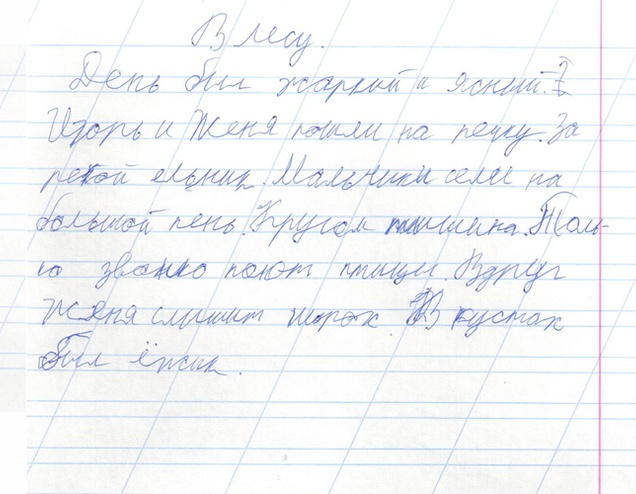 В лесу.
День был жаркий и ясный.
Игорь и Женя пошли на речку. За
рекой ельник. Мальчики сели на
большой пень. Кругом тишина. Толь-
ко звонко поют птицы. Вдруг
Жэня слышит шорох. В кустах
был ёжик.